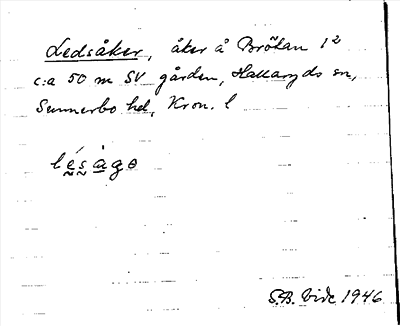 Ledsåker, åker å Brötan 1²
c:a 50 m SV gården, Hallaryds sn,
Sunnerbo hd, Kron. l
lésàgə
S.B. Vide 1946